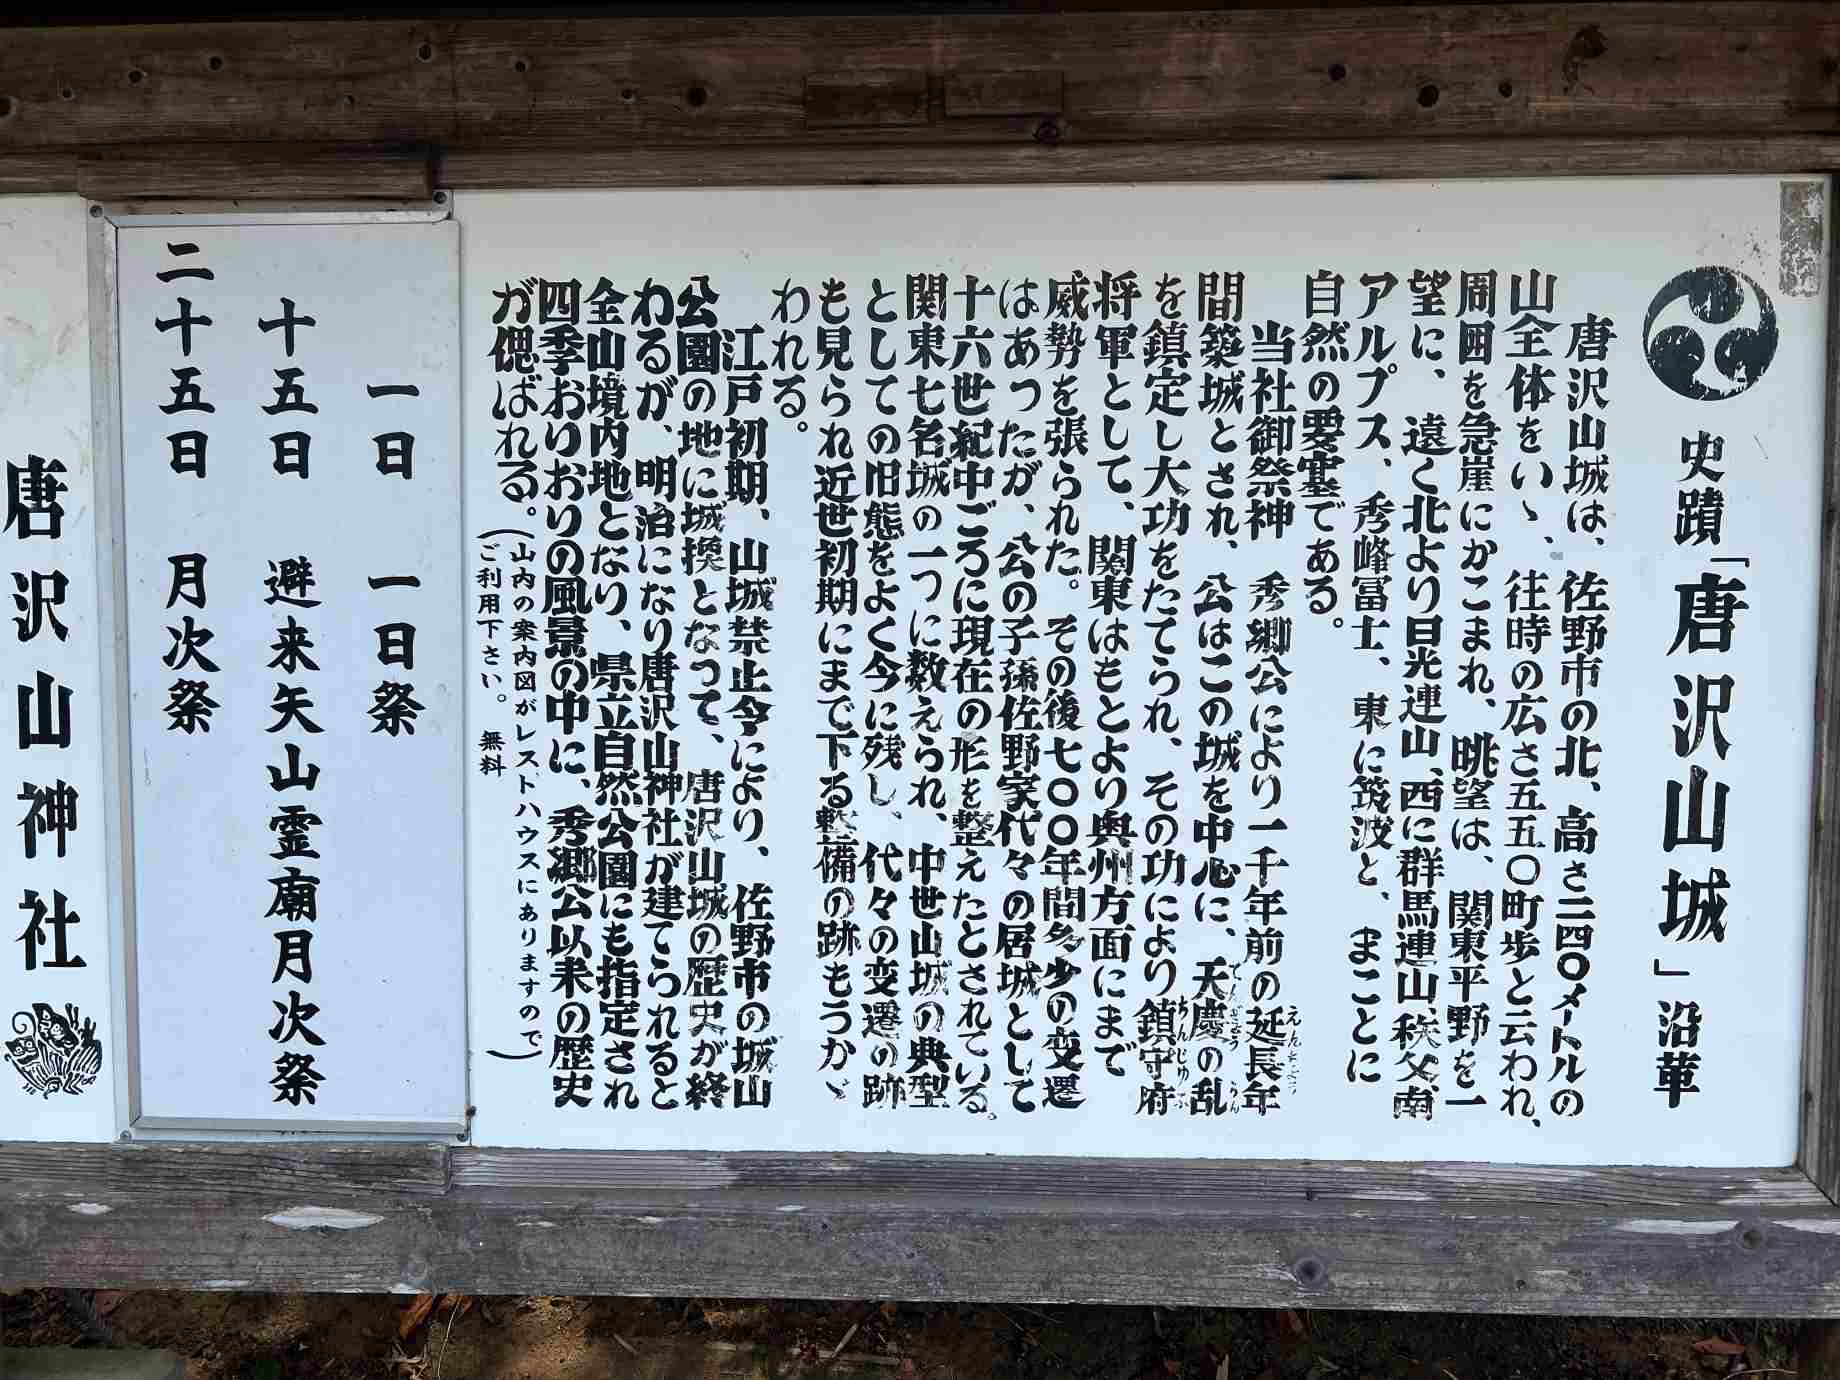 史蹟「唐沢山城」沿革
唐沢山城は、佐野市の北、高さ二四〇メートルの
山全体をいゝ、往時の広さ五五〇町歩と云われ、
周囲を急崖にかこまれ、眺望は、関東平野を一
望に、遠く北より日光連山、西に群馬連山、秩父、南
アルプス、秀峰冨士、東に筑波と、まことに
自然の要塞である。
当社御祭神 秀郷公により一千年前の延長年
えんちょう
間築城とされ、公はこの城を中心に、天慶の乱
てんぎょう らん
を鎮定し大功をたてられ、その功により鎮守府
ちんじゅふ
将軍として、関東はもとより奥州方面にまで
威勢を張られた。その後七〇〇年間多少の変遷
はあったが、公の子孫佐野家代々の居城として
十六世紀中ごろに現在の形を整えたとされている。
関東七名城の一つに数えられ、中世山城の典型
としての旧態をよく今に残し、代々の変遷の跡
も見られ近世初期にまで下る整備の跡もうかゞ
われる。
江戸初期、山城禁止令により、佐野市の城山
公園の地に城換となって、唐沢山城の歴史が終
わるが、明治になり唐沢山神社が建てられると
全山境内地となり、県立自然公園にも指定され
四季おりおりの風景の中に、秀郷公以来の歴史
が偲ばれる。
(山内の案内図がレストハウスにありますので
ご利用下さい。 無料)
一日 一日祭
十五日 避来矢山霊廟月次祭
二十五日 月次祭
唐沢山神社